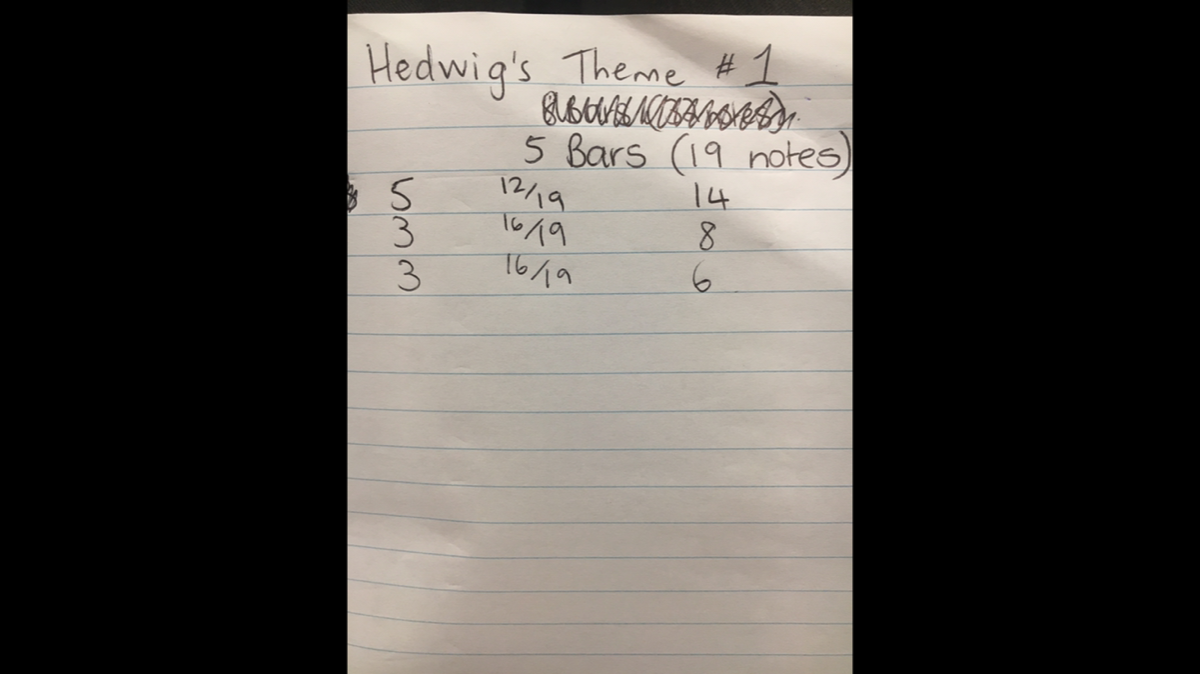 Hedwig's Theme #1
5 Bars (19 notes)
5 12/19 14
3 16/19 8
3 16/19 6